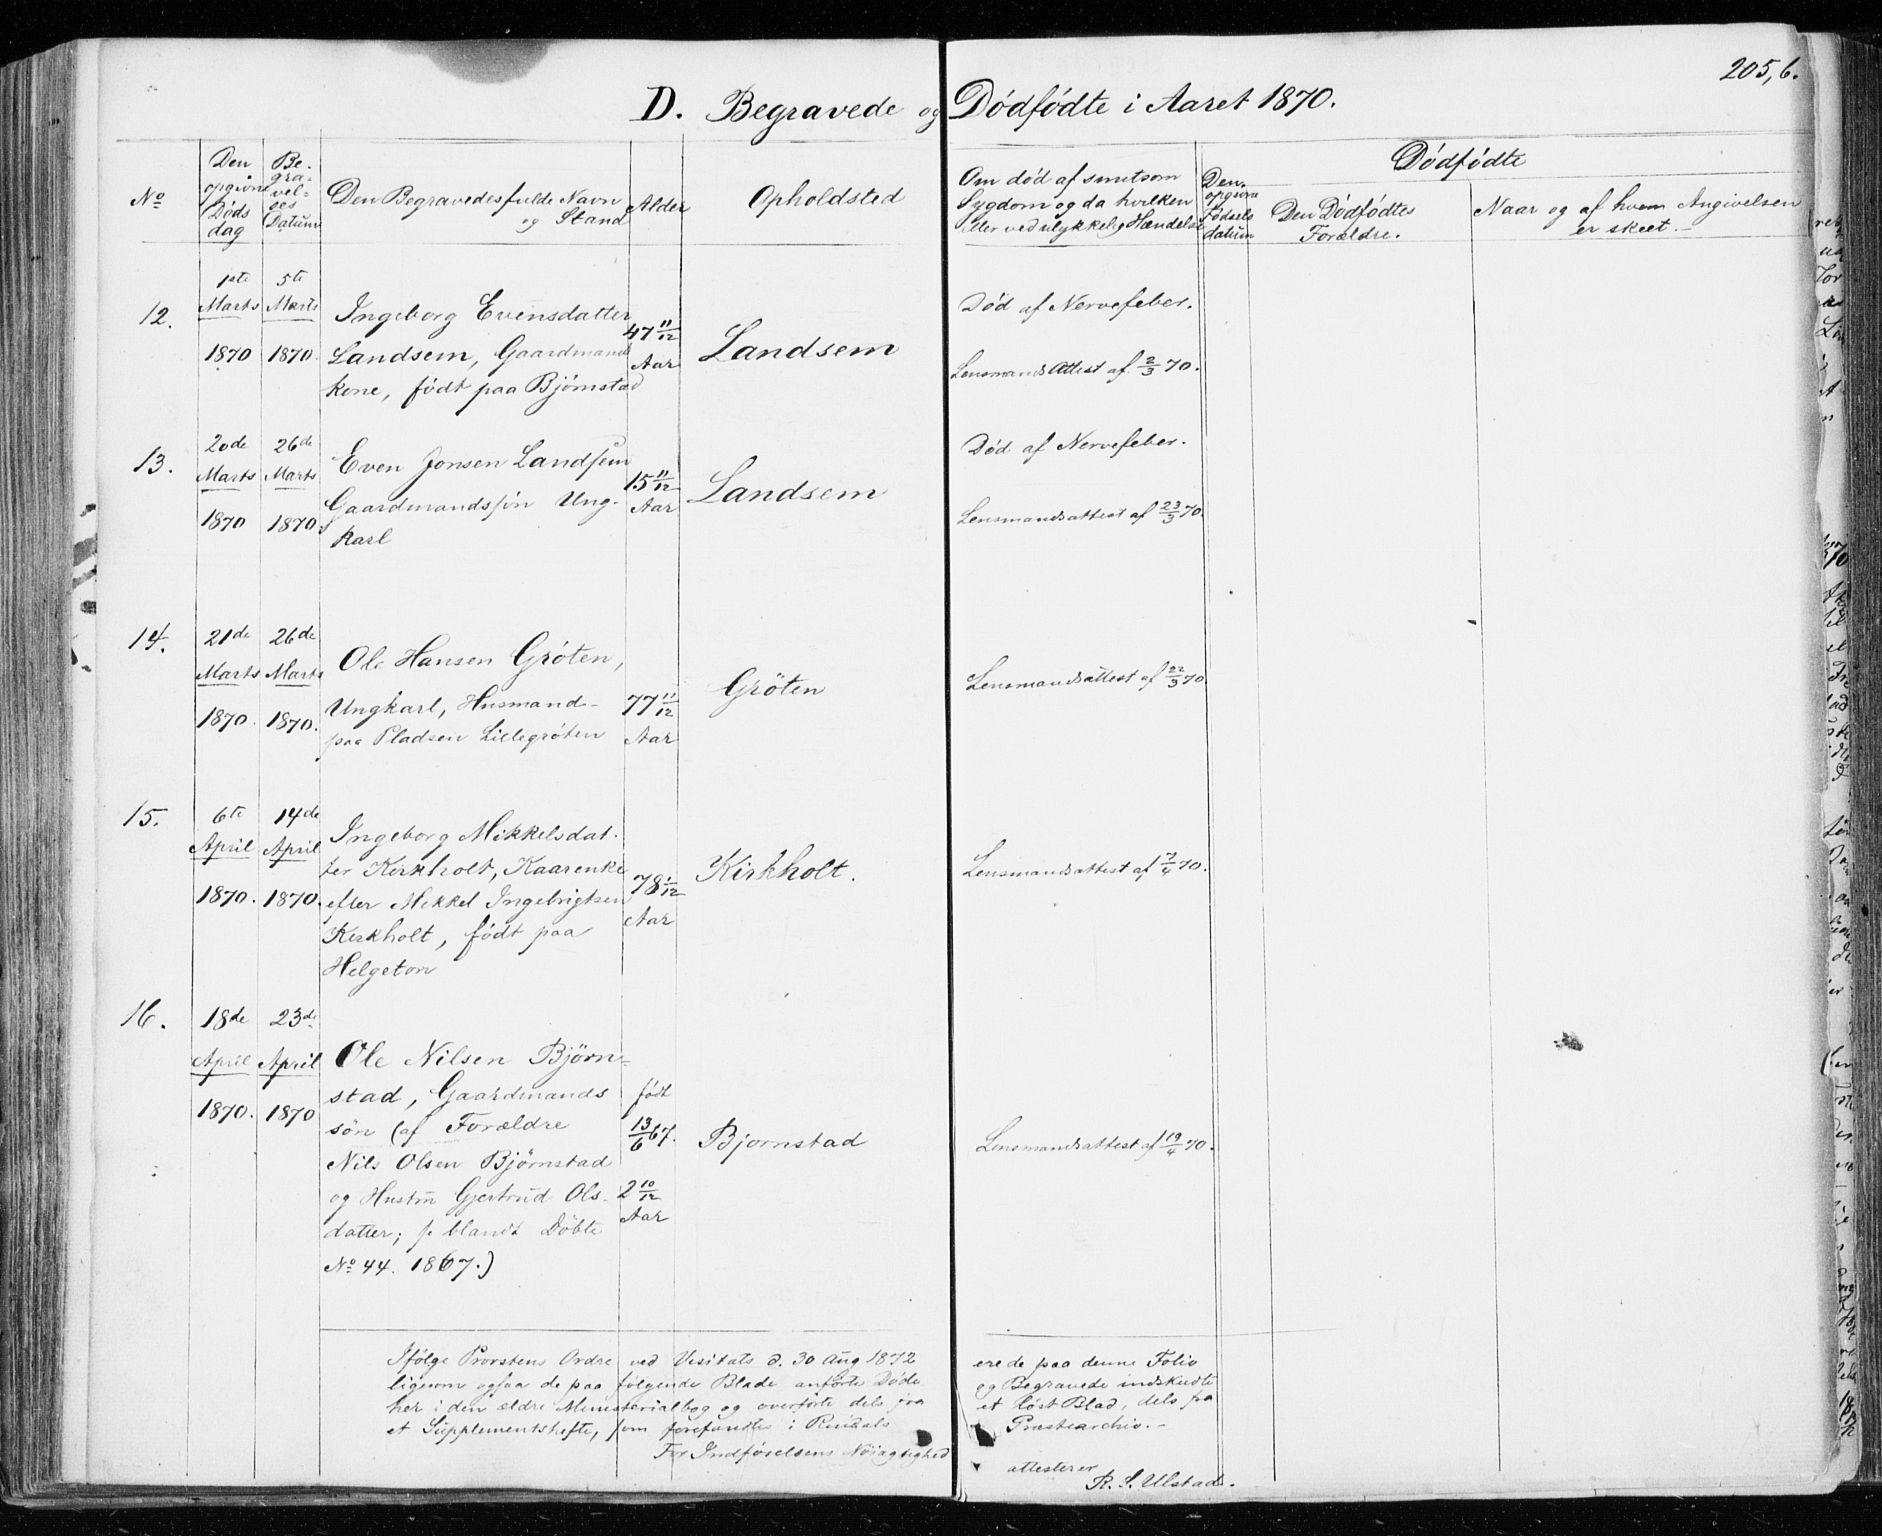 205,6.
D. Begravede og Dødfødte i Aaret 1870.
No
Den opgivne Døds dag
Be-gra-vel-ses Datum
Den Begravedes fulde Navn og Stand
Alder
Opholdsted
Om død af smitsom Sygdom og da hvilken eller ved ulykkelig Hændelse
Dødfødte
Den opgivne Fødsels datum
Den Dødfødtes Forældre.
Naar og af hvem Angivelsen er skeet.
12.
1ste Marts 1870
5te Marts 1870
Ingeborg Evensdatter
Landsem, Gaardmands
kone, født paa Bjørnstad
47 11/12 Aar
Landsem
Død af Nervefeber.
Lensmands Attest af 2/3 70.
13.
20de Marts 1870
26de Marts 1870
Even Jonsen Landsem
Gaardmandssøn Ung-
karl
15 11/12 Aar
Landsem
Død af Nervefeber.
Lensmandsattest af 23/3 70.
14.
21de Marts 1870.
26de Marts 1870.
Ole Hansen Grøten,
Ungkarl, Husmand
paa Pladsen Lillegrøten
77 11/12 Aar
Grøten
Lensmandsattest af 22/3 70
15.
6te April 1870.
14de April 1870.
Ingeborg Mikkelsdat-
ter Kirkholt, Kaarenke
efter Mikkel Ingebrigtsen
Kirkholt, født paa
Helgeton
78 1/12 Aar
Kirkholt.
Lensmandsattest af 7/4 70.
16.
18de April 1870.
23de April 1870
Ole Nilsen Bjørn-
stad, Gaardmands
søn (af Forældre
Nils Olsen Bjørnstad
og Hustru Gjertrud Ols-
datter; se blandt Døbte
No 44. 1867.)
født 13/6 67.
2 10/12 Aar
Bjørnstad
Lensmandsattest af 19/4 70.
Ifølge Provstens Ordre ved Visitats d. 30 Aug 1872 ere de paa denne Folio
ligesom ogsaa de paa følgende Blade anførte Døde og Begravede indskudte
her i den ældre Ministerialbog og overførte dels fra et løst Blad, dels fra
et Supplementshefte, som forefandtes i Rindals Præstearchiv.
For Indførelsens Nøiagtighed attesterer
R. S. Ulstad.